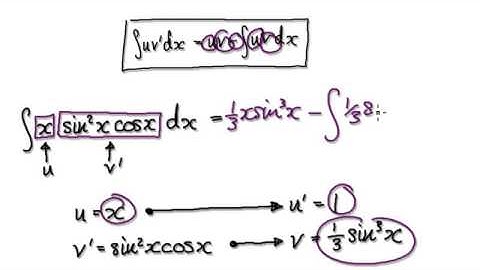 ∫uv'dx = uv - ∫u'v dx
∫ x sin²x cosx dx = ⅓xsin³x - ∫ ⅓ s
u v'
u = x u' = 1
v' = sin²xcosx v = ⅓ sin³x